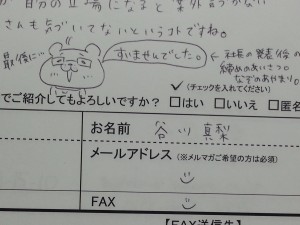 自分の立場になると案外気づかない
さんも気づいてないというコトですね。
最後に…
すいませんでした。
← 社長の発表後の
締めのあいさつ。
なぞのあやまり。
(チェックを入れてください)
でご紹介してもよろしいですか? □はい □いいえ □匿名
お名前 谷川 真梨
メールアドレス (※メルマガご希望の方は必須)
FAX
【FAX送信先】